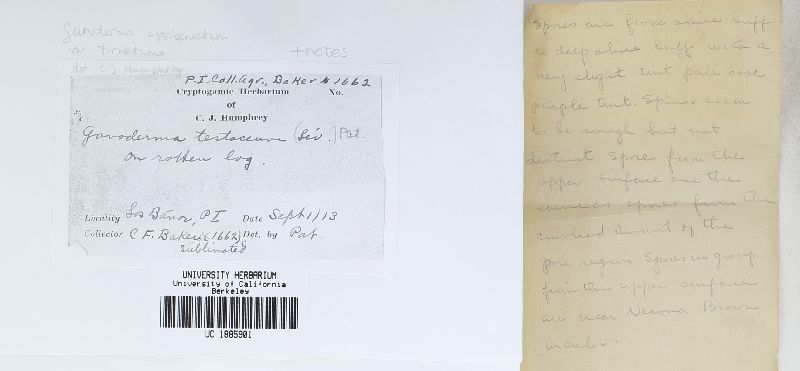 Ganoderma applanatum
var. tornatum
det. C. J. Humphrey
+notes
P.I. Coll. Agr., Baker # 1662
Cryptogamic Herbarium No.
of
C. J. Humphrey
Ganoderma testaceum (Lév.) Pat.
on rotten log.
Locality Los Baños, P I Date Sept 1/13
Collector C F. Baker (1662) Det. by Pat.
Sublimated
UNIVERSITY HERBARIUM
University of California
Berkeley
UC 1985901
Spores are from olive buff
to deep olive buff with a
very slight tint pale rose
purple tint. Spines seem
to be rough but not
distinct. Spores from the
upper surface are the
same as spores from the
crushed mount of the
pore region. Spores in group
from the upper surface
are near Verona Brown
in color.